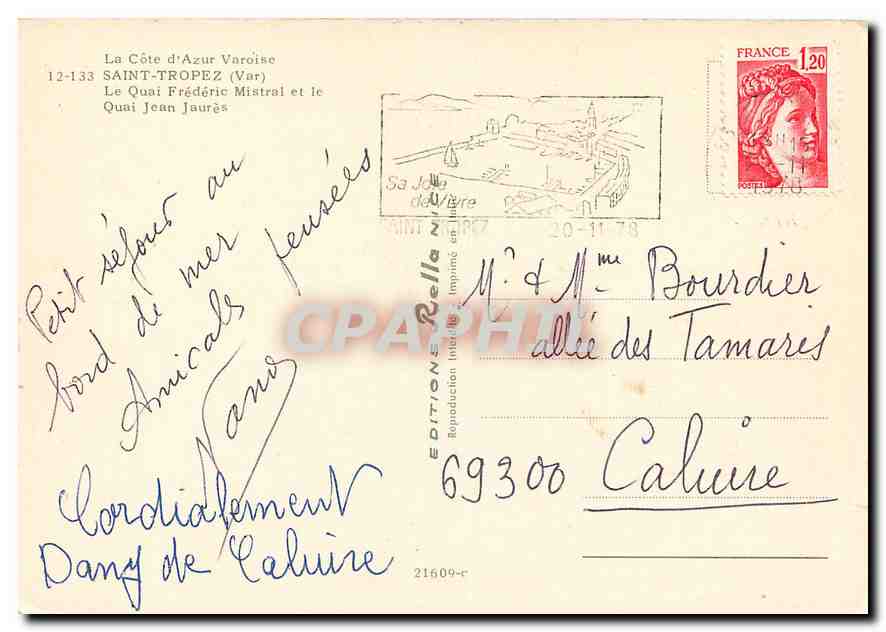 La Côte d'Azur Varoise
12-133 SAINT-TROPEZ (Var)
Le Quai Frédéric Mistral et le
Quai Jean Jaurès
Sa Joie
de Vivre
SAINT TROPEZ 20-11-78
FRANCE 1,20
POSTES
1978
Petit séjour au
bord de mer
Amicales pensées
Cordialement
Dany de Caluire
EDITIONS Rella NICE
Reproduction Interdite. Imprimé en
CPAPHIL
Mr & Mme Bourdier
allée des Tamaris
69300 Caluire
21609-c